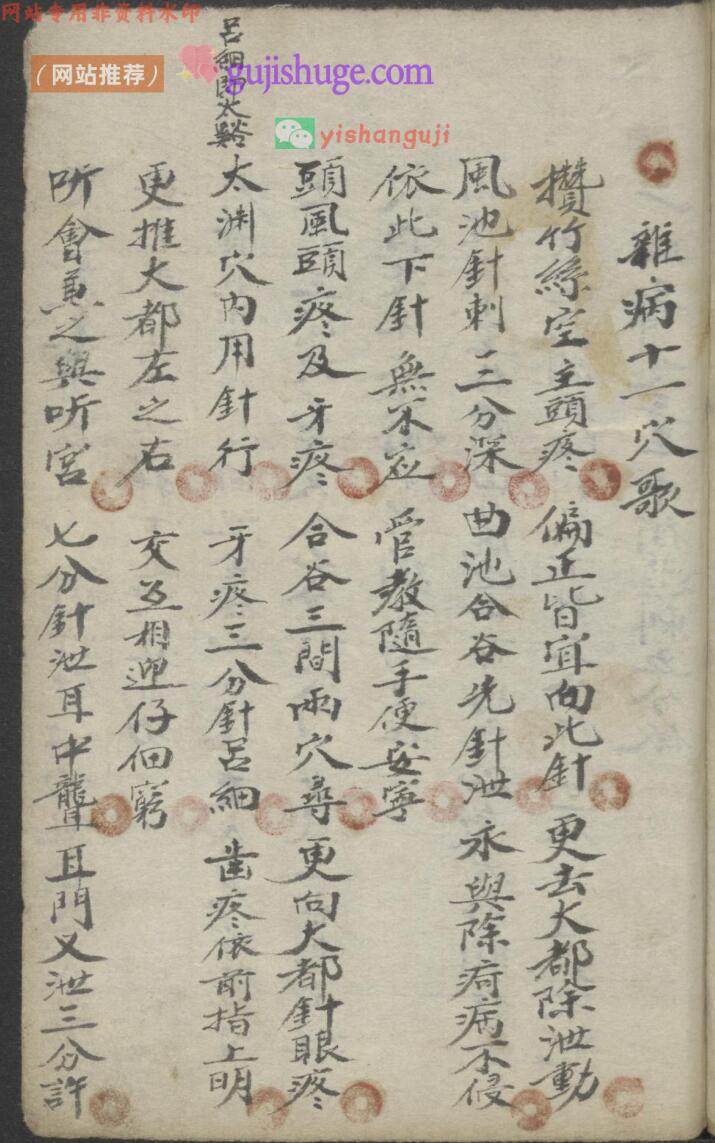 网站专用非资料水印
（网站推荐）
gujishuge.com
yishanguji
雜病十一穴歌
攢竹絲空主頭疼 偏正皆宜向此針 更去大都除泄動
風池針刺三分深 曲池合谷先針泄 永與除疴病不侵
依此下針無不应 管教隨手便安寧
頭風頭疼及牙疼 合谷三間兩穴尋 更向大都針眼疼
太渊穴內用針行 牙疼三分針呂細 齒疼依前指上明
更推大都左之右 交互相迎仔細窮
听會兼之與听宮 七分針泄耳中聾 耳門又泄三分許
呂細即太谿